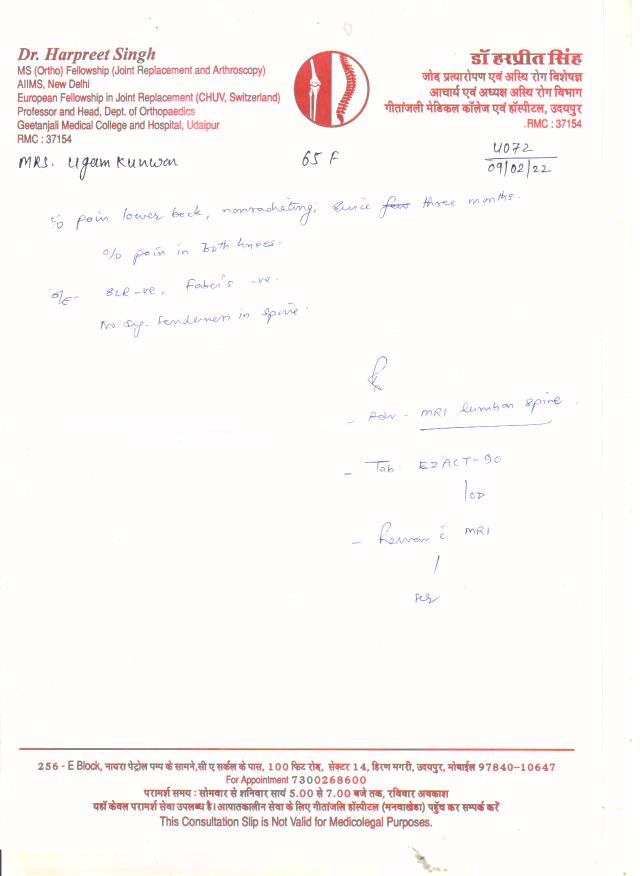 Dr. Harpreet Singh
MS (Ortho) Fellowship (Joint Replacement and Arthroscopy)
AIIMS, New Delhi
European Fellowship in Joint Replacement (CHUV, Switzerland)
Professor and Head, Dept. of Orthopaedics
Geetanjali Medical College and Hospital, Udaipur
RMC : 37154
डॉ हरप्रीत सिंह
जोड़ प्रत्यारोपण एवं अस्थि रोग विशेषज्ञ
आचार्य एवं अध्यक्ष अस्थि रोग विभाग
गीतांजली मेडिकल कॉलेज एवं हॉस्पीटल, उदयपुर
RMC : 37154
MRS. Ugam Kunwar 65 F
4072
09/02/22
c/o pain lower back, nonradiating, since three months.
c/o pain in both knees.
O/E- SLR -ve, Faber's -ve.
No tenderness in spine.
Rx
- Adv - MRI lumbar spine.
- Tab. EZACT-90
OD
- c̄ MRI
256 - E Block, नायरा पेट्रोल पम्प के सामने, सी ए सर्कल के पास, 100 फिट रोड, सेक्टर 14, हिरण मगरी, उदयपुर, मोबाईल 97840-10647
For Appointment 7300268600
परामर्श समय : सोमवार से शनिवार सायं 5.00 से 7.00 बजे तक, रविवार अवकाश
यहाँ केवल परामर्श सेवा उपलब्ध है। आपातकालीन सेवा के लिए गीतांजली हॉस्पीटल (मनवाखेडा) पहुँच कर सम्पर्क करें
This Consultation Slip is Not Valid for Medicolegal Purposes.